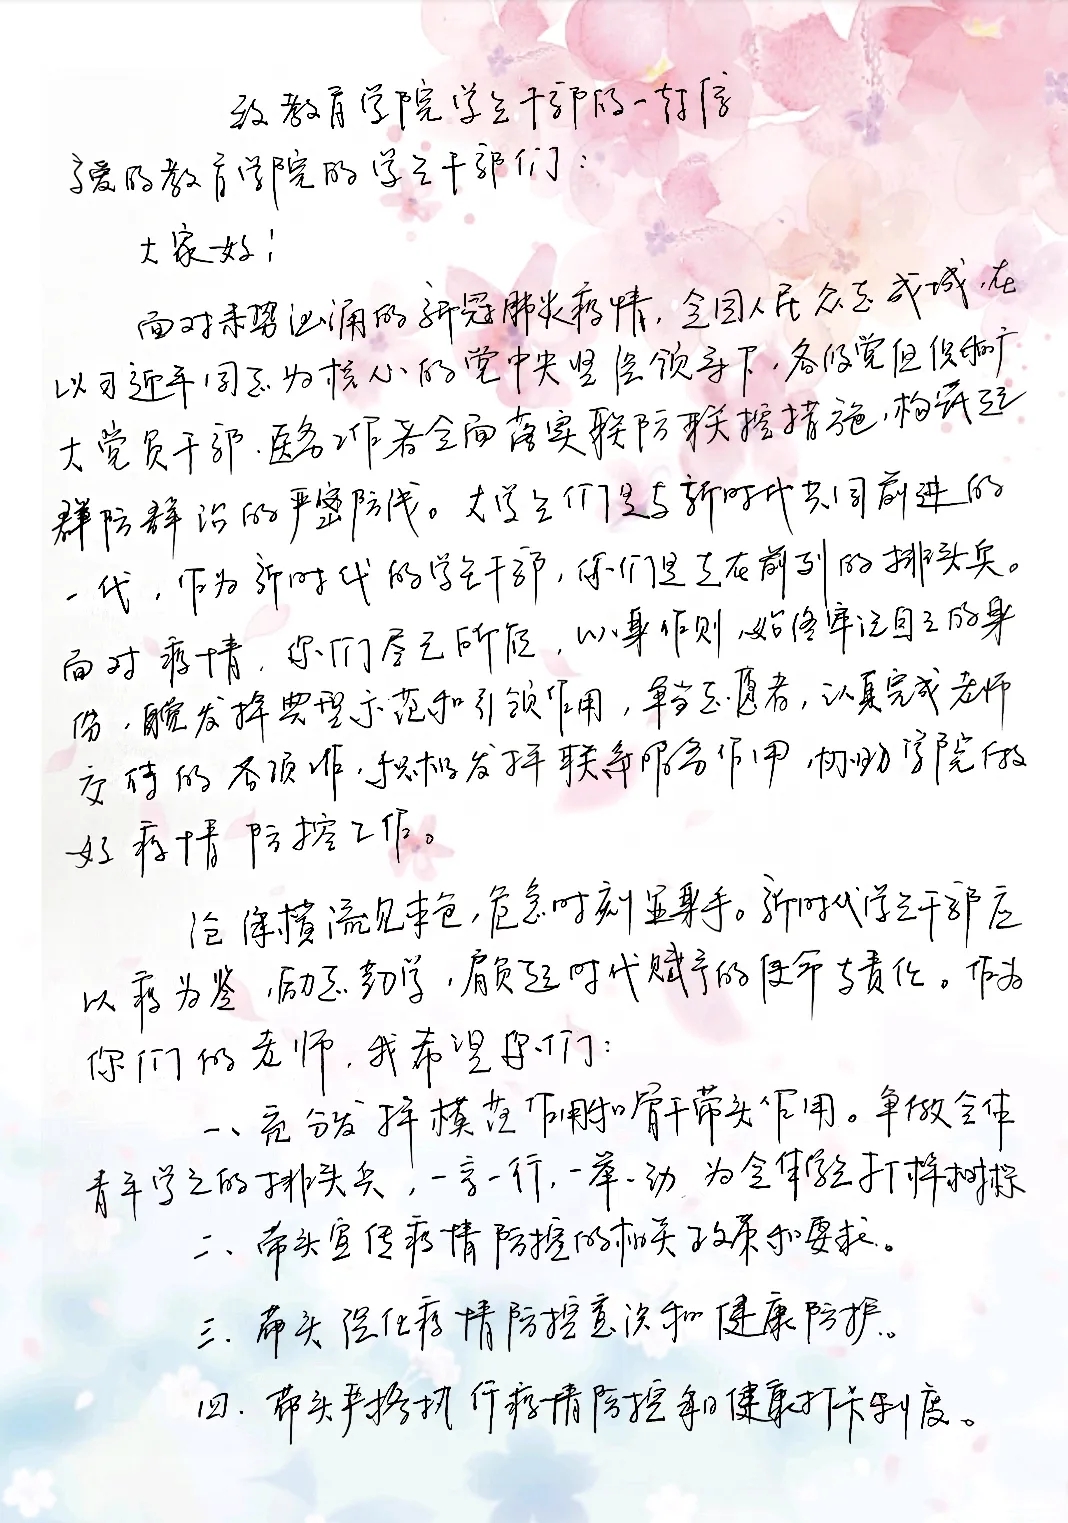 致教育学院学生干部的一封信
亲爱的教育学院的学生干部们：
大家好！
面对来势汹涌的新冠肺炎疫情，全国人民众志成城，在
以习近平同志为核心的党中央坚强领导下，各级党组织和广
大党员干部、医务工作者全面落实联防联控措施，构筑起
群防群治的严密防线。大学生们是与新时代共同前进的
一代，作为新时代的学生干部，你们是走在前列的排头兵。
面对疫情，你们尽己所能，以身作则，始终牢记自己的身
份，自觉发挥典型示范和引领作用，争当志愿者，认真完成老师
交待的各项工作，积极发挥联系服务作用，协助学院做
好疫情防控工作。
沧海横流见本色，危急时刻显身手。新时代学生干部应
以疫为鉴，励志勤学，肩负起时代赋予的使命与责任。作为
你们的老师，我希望你们：
一、充分发挥模范作用和骨干带头作用。争做全体
青年学生的排头兵，一言一行，一举一动，为全体学生打样树标
二、带头宣传疫情防控的相关政策和要求。
三、带头强化疫情防控意识和健康防护。
四、带头严格执行疫情防控每日健康打卡制度。